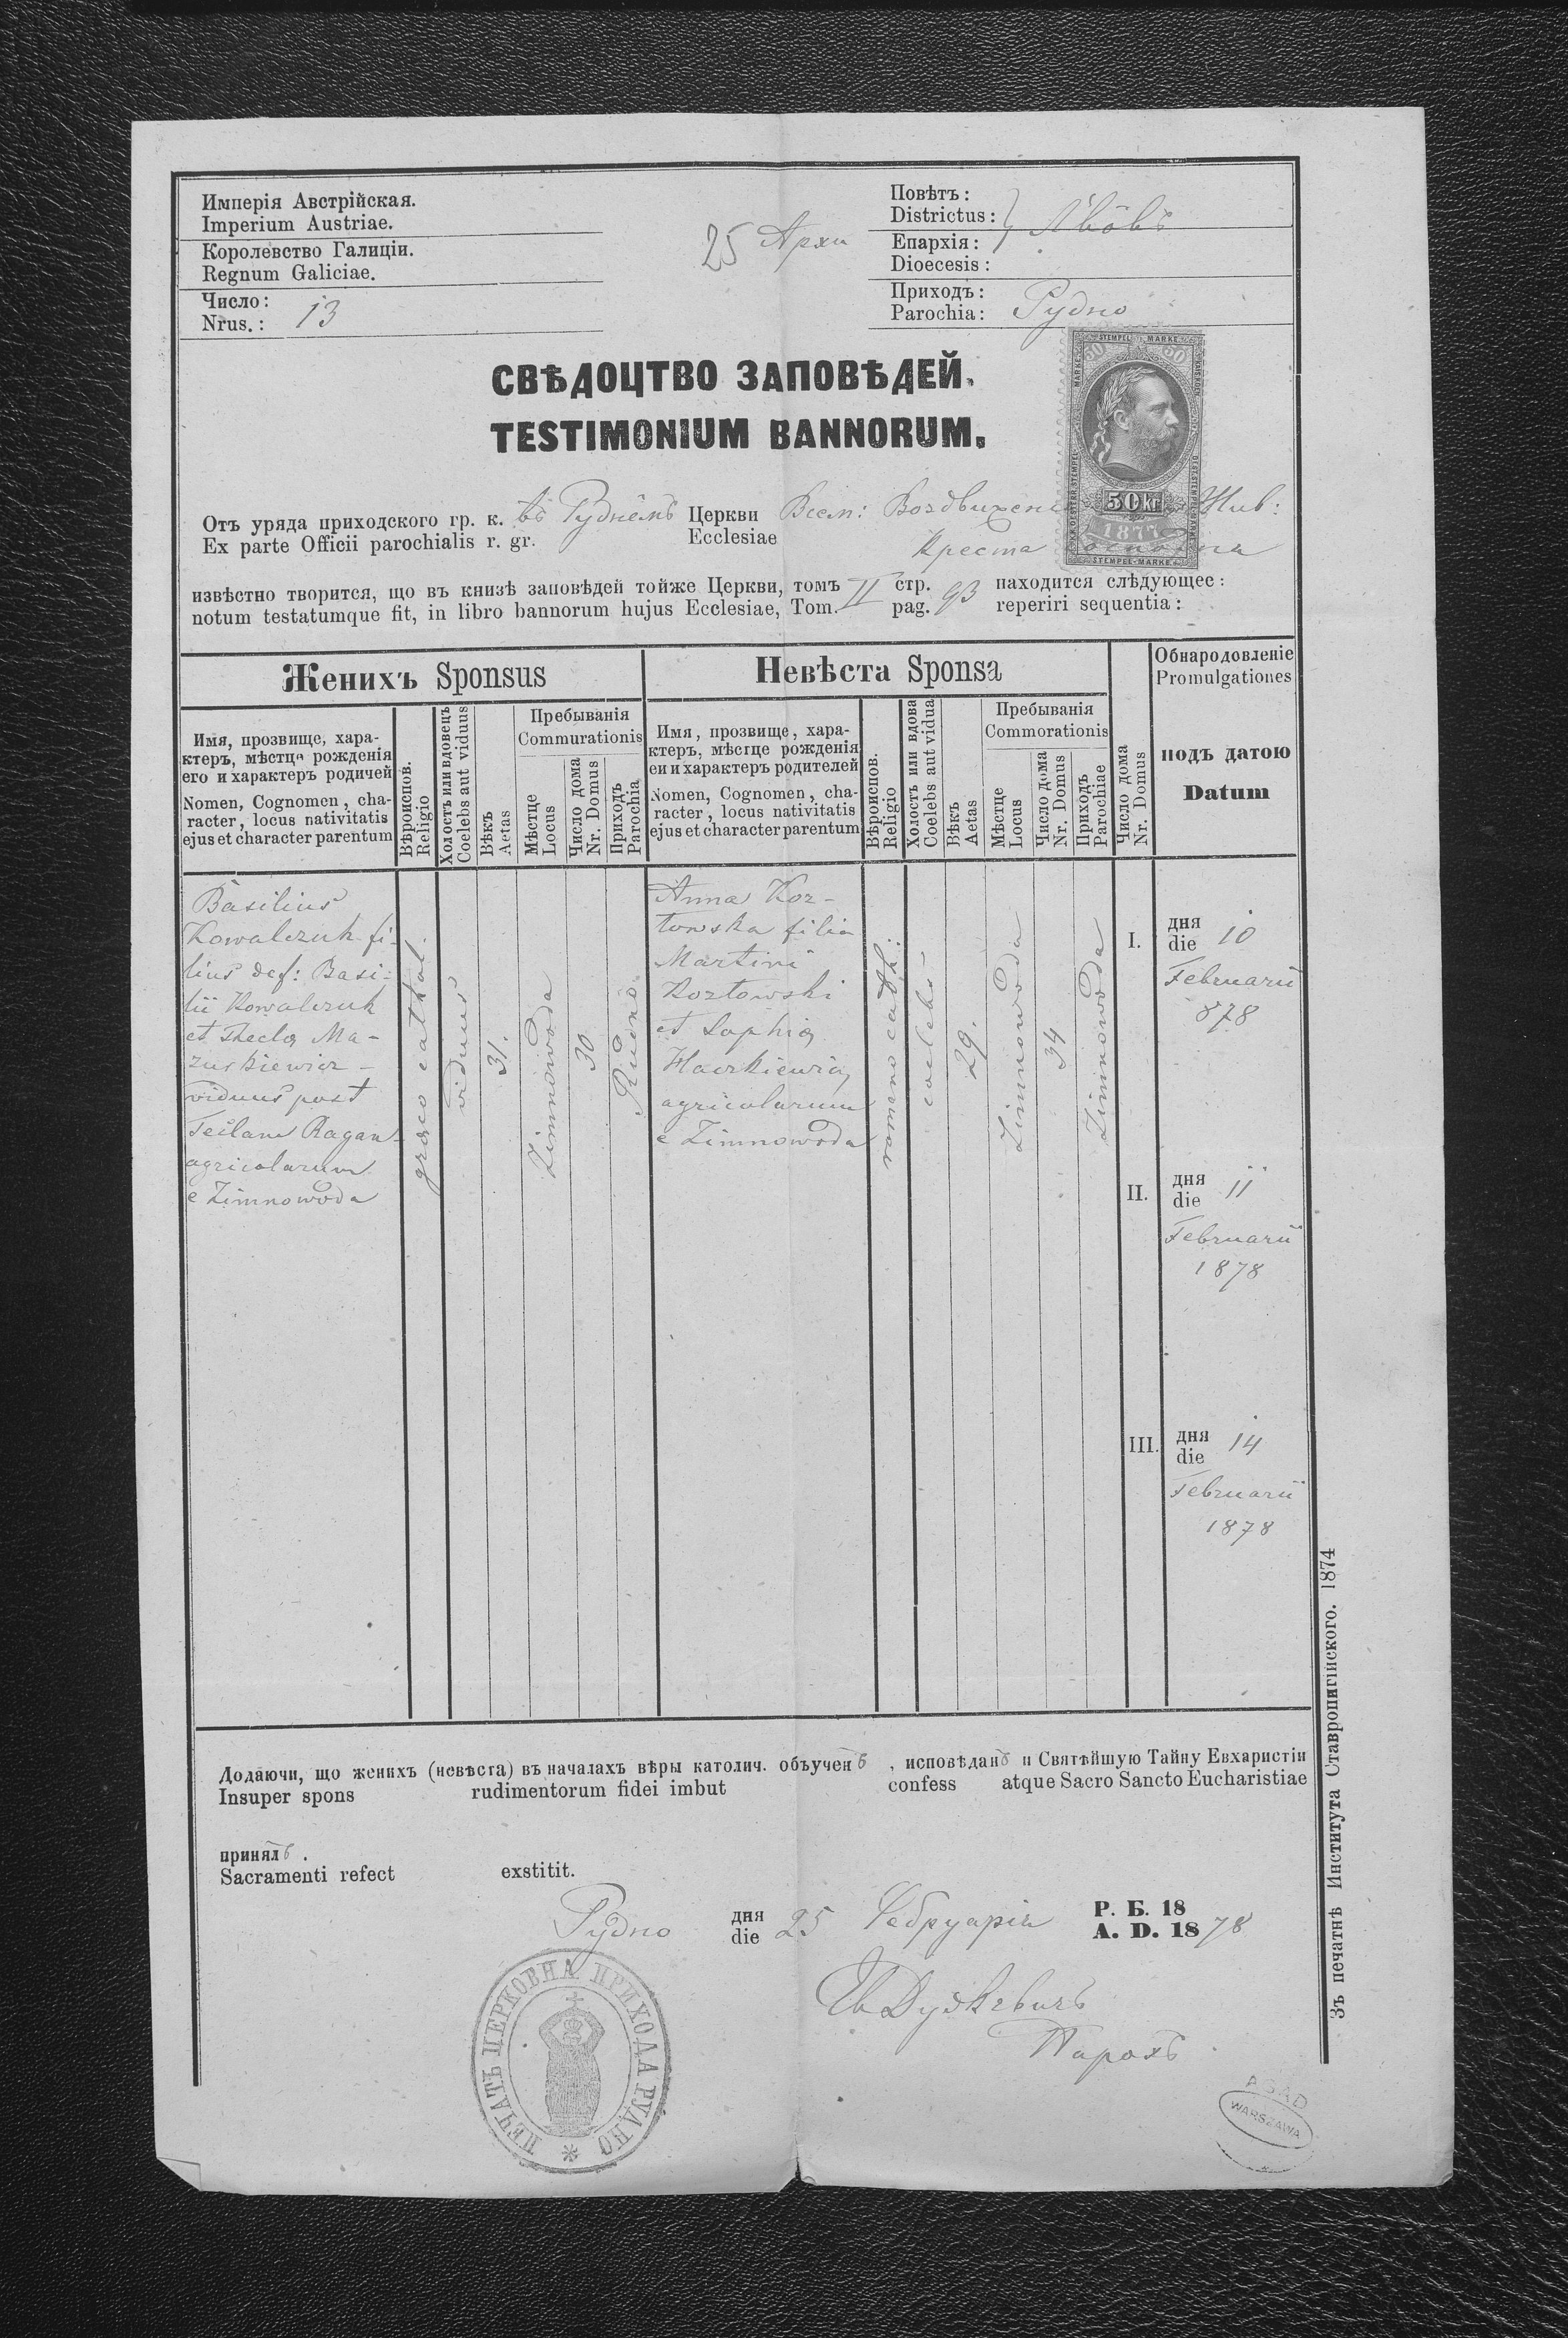 Имперія Австрійская.
Imperium Austriae.
Королевство Галиціи.
Regnum Galiciae.
Число:
Nrus.: 13
25
Повѣтъ:
Districtus: Львôвъ
Епархія:
Dioecesis:
Приходъ:
Parochia: Рудно
СВѢДОЦТВО ЗАПОВѢДЕЙ.
TESTIMONIUM BANNORUM.
STEMPEL MARKE
50 kr
1877
STEMPEL-MARKE
Отъ уряда приходского гр. к. въ Руднêмъ Церкви Всем: Воздвиженія Жив:
Ex parte Officii parochialis r. gr. Ecclesiae Креста Господня
извѣстно творится, що въ книзѣ заповѣдей тойже Церкви, томъ II стр. 93 находится слѣдующее:
notum testatumque fit, in libro bannorum hujus Ecclesiae, Tom. pag. reperiri sequentia:
Женихъ Sponsus
Имя, прозвище, хара-
ктеръ, мѣстце рожденія
его и характеръ родичей
Nomen, Cognomen, cha-
racter, locus nativitatis
ejus et character parentum
Вѣроиспов.
Religio
Холостъ или вдовецъ
Coelebs aut viduus
Вѣкъ
Aetas
Пребыванія
Commurationis
Мѣстце
Locus
Число дома
Nr. Domus
Приходъ
Parochia
Невѣста Sponsa
Имя, прозвище, хара-
ктеръ, мѣстце рожденія
еи и характеръ родителей
Nomen, Cognomen, cha-
racter, locus nativitatis
ejus et character parentum
Вѣроиспов.
Religio
Холостъ или вдова
Coelebs aut vidua
Вѣкъ
Aetas
Пребыванія
Commorationis
Мѣстце
Locus
Число дома
Nr. Domus
Приходъ
Parochiae
Число дома
Nr. Domus
Обнародовленіе
Promulgationes
подъ датою
Datum
Basilius
Kowalczuk fi-
lius def: Basi-
lii Kowalczuk
et Thecla Ma-
zurkiewicz -
viduus post
Teclam Ragan
agricolarum
e Zimnowoda
graeco cathol.
viduus
31.
Zimnowoda
30
Rudno.
Anna Koz-
łowska filia
Martini
Kozłowski
et Sophia
Hackiewicz
agricolarum
e Zimnowoda
romano cath:
coelebs
29.
Zimnowoda
34
Zimnowoda
I. дня
die 10
Februarii
878
II. дня
die 11
Februarii
1878
III. дня
die 14
Februarii
1878
Додаючи, що женихъ (невѣста) въ началахъ вѣры католич. объученъ , исповѣданъ и Святѣйшую Тайну Евхаристіи
Insuper spons rudimentorum fidei imbut confess atque Sacro Sancto Eucharistiae
принялъ .
Sacramenti refect exstitit.
Рудно дня 25 Фебруарія Р. Б. 18
die A. D. 1878
Парохъ
ПЕЧАТЬ ЦЕРКОВНА ПРИХОДА РУДНО
AGAD
WARSZAWA
Зъ печатнѣ Института Ставропигійского. 1874